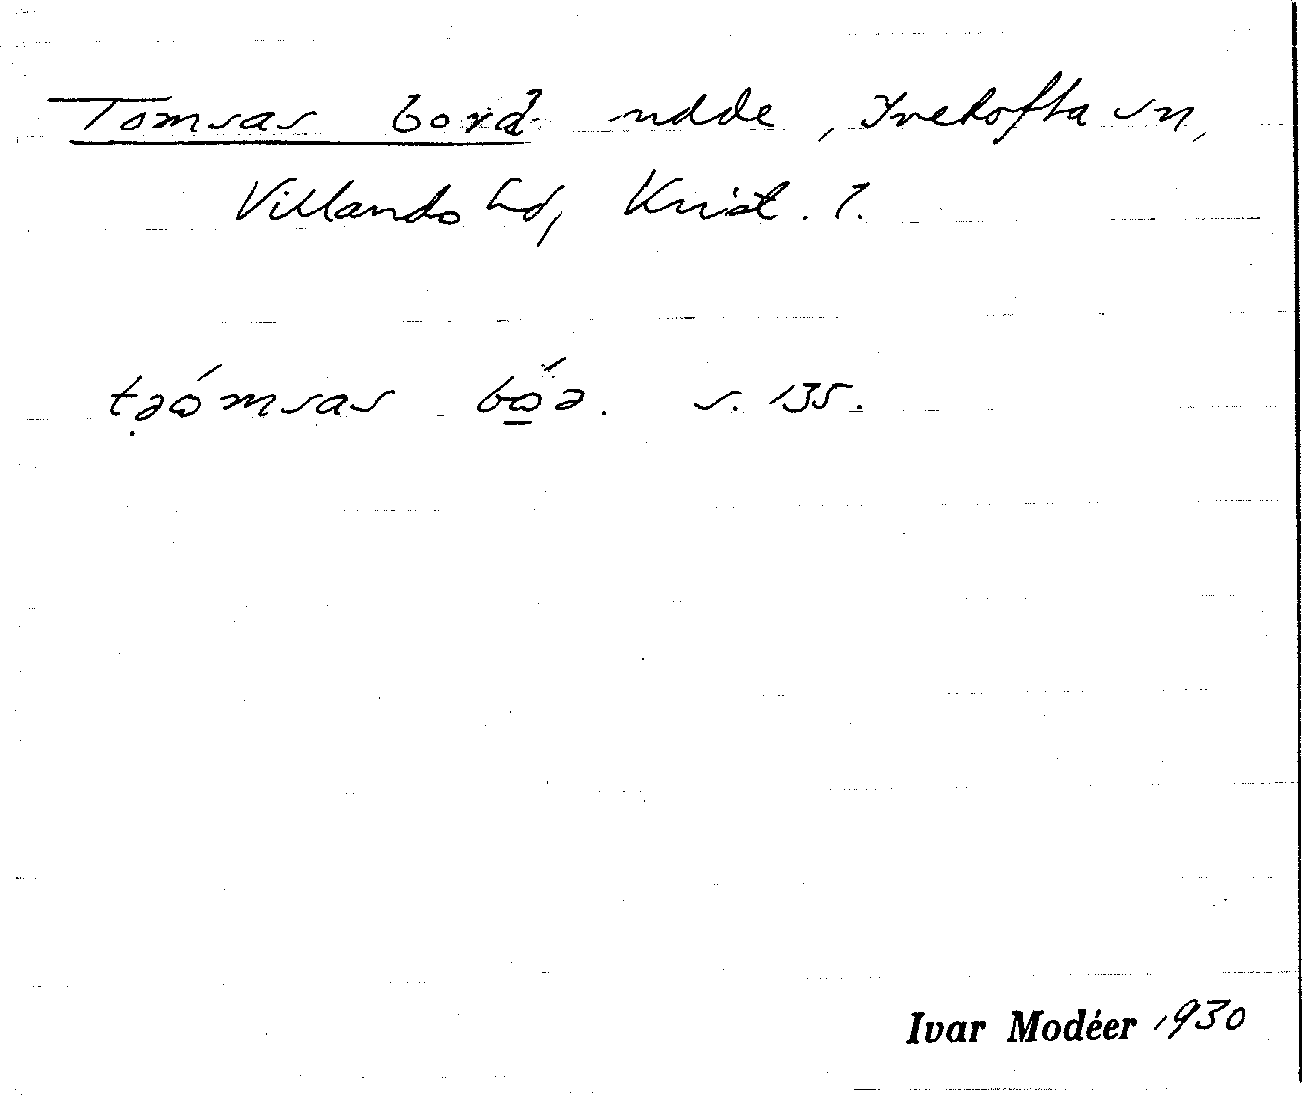 Tomsas bord udde, Ivetofta sn,
Villands hd, Krist. l.
təómsas bǫ́ə. s. 135.
Ivar Modéer 1930